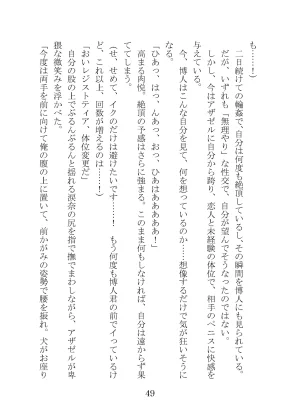 も……！）
　二日続けての輪姦で、自分は何度も絶頂しているし、その瞬間を博人にも見られている。
だが、いずれも「無理やり」な性交で、自分が望んでそうなったのではない。
　しかし、今はアザゼルに自分から跨り、恋人と未経験の体位で、相手のペニスに快感を
与えている。
　今、博人はこんな自分を見て、何を想っているのか……想像するだけで気が狂いそうに
なる。
「ひあっ、はっ、んぁっ、おっ、ひああああぁ！」
　高まる肉悦。絶頂の予感はさらに強まる。このまま何もしなければ、自分は遠からず果
ててしまう。
（せ、せめて、イクのだけは避けたいです……！　もう何度も博人君の前でイっているけ
ど、これ以上、回数が増えるのは……！）
「おいレジストティア、体位変更だ」
　自分の股の上でぶるんぶるんと揺れる涙奈の尻を指で撫でまわしながら、アザゼルが卑
猥な微笑みを浮かべた。
「今度は両手を前に向けて俺の腹の上に置いて、前かがみの姿勢で腰を振れ。犬がお座り
49